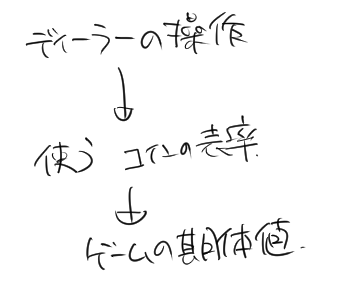 ディーラーの操作
↓
使う コインの表率.
↓
ゲームの期待値.